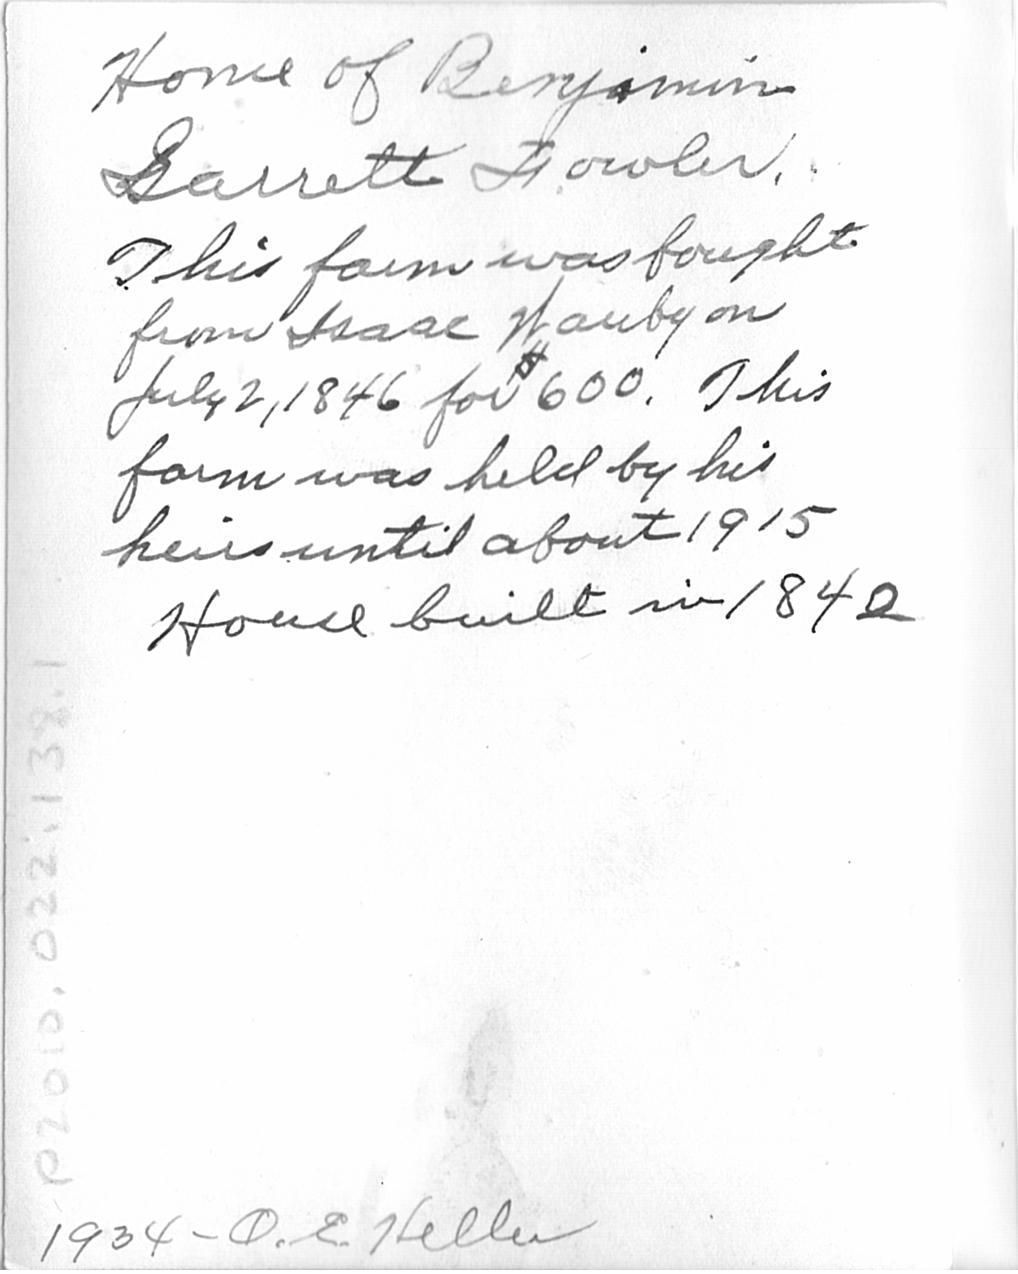 Home of Benjamin
Garrett Fowler.
This farm was bought
from Isaac Wauby on
July 2, 1846 for $600. This
farm was held by his
heirs until about 1915
House built in 1842
P2010.022.138.1
1934 - O. E. Heller